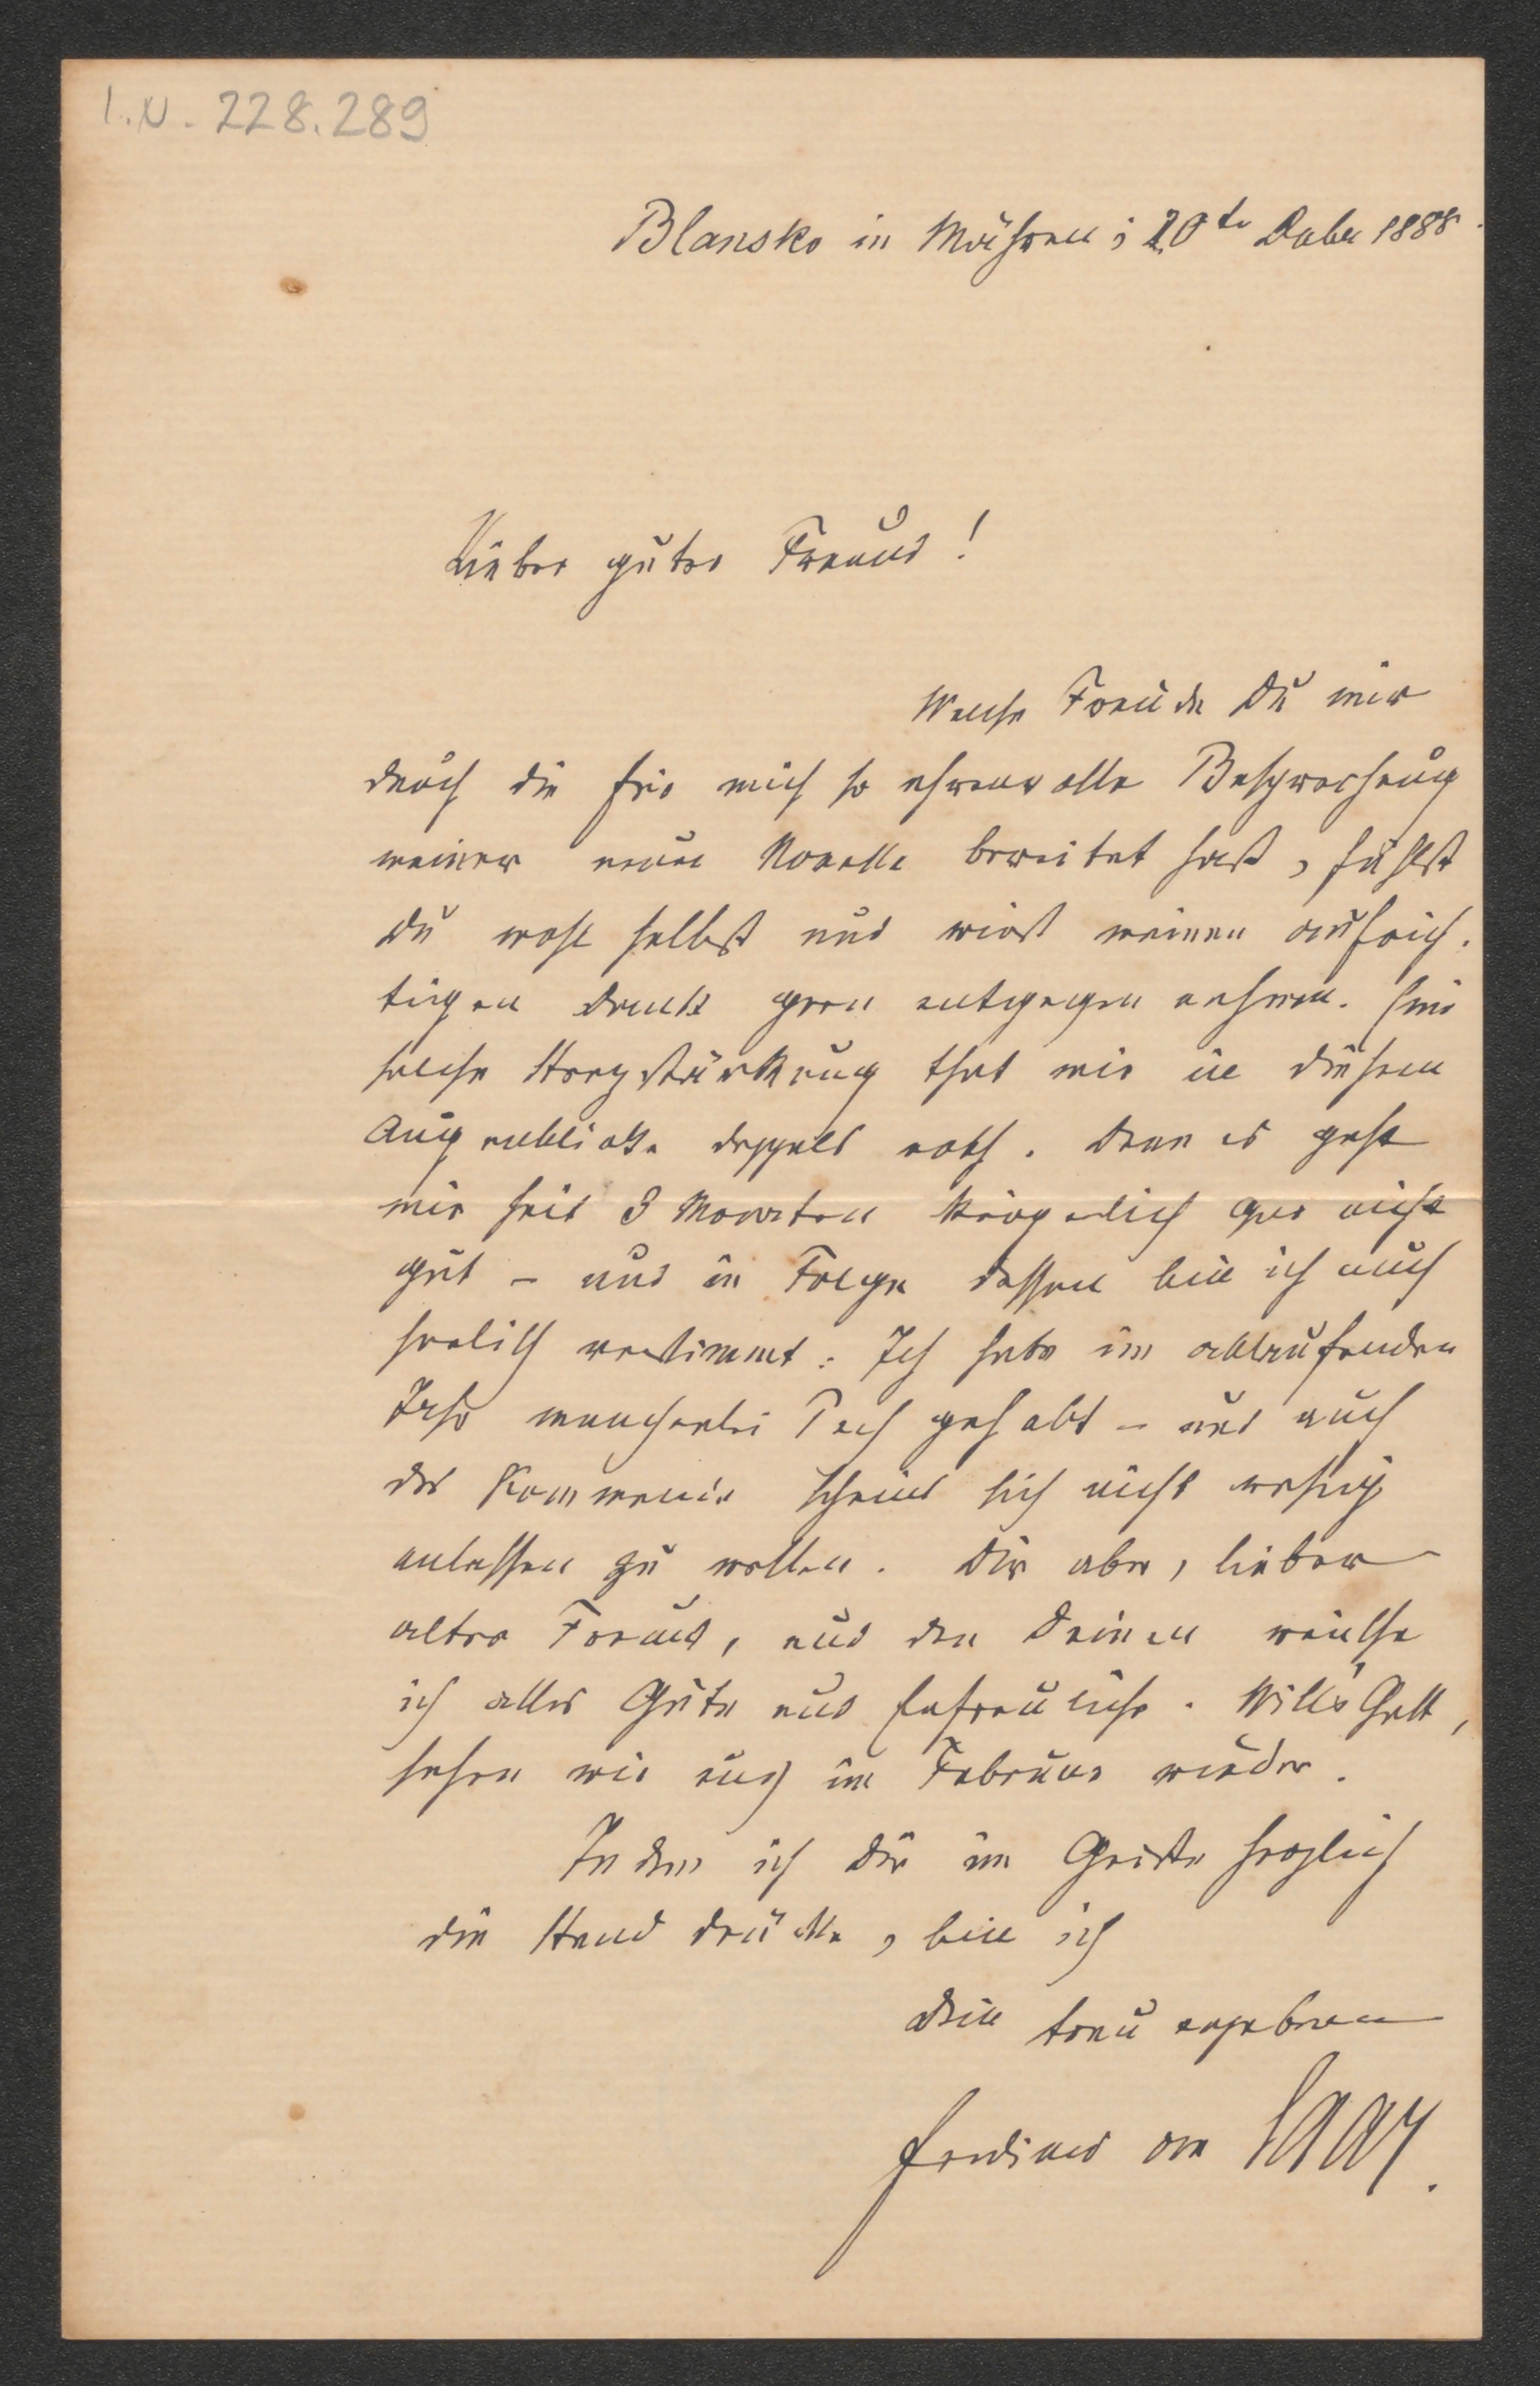 I.N. 228.289
Blansko in Mähren; 20te Dzber 1888.
Lieber guter Freund!
Welche Freude Du mir
durch die für mich so ehrenvolle Besprechung
meiner neuen Novelle bereitet hast, fühlst
Du wohl selbst und wirst meinen aufrich-
tigen Dank gern entgegen nehmen. Eine
solche Herzstärkung that mir in diesem
Augenblicke doppelt noth. Denn es geht
mir seit 3 Monaten körperlich gar nicht
gut – und in Folge dessen bin ich auch
seelisch verstimmt. Ich habe im ablaufenden
Jahr mancherlei Pech gehabt – und auch
das Kommende scheint sich nicht rosig
anlassen zu wollen. Dir aber, lieber
alter Freund, und den Deinen wünsche
ich alles Gute und Erfreuliche. Will's Gott,
sehen wir uns im Februar wieder.
Indem ich Dir im Geiste herzlich
die Hand drücke, bin ich
Dein treu ergebener
Ferdinand von Saar.